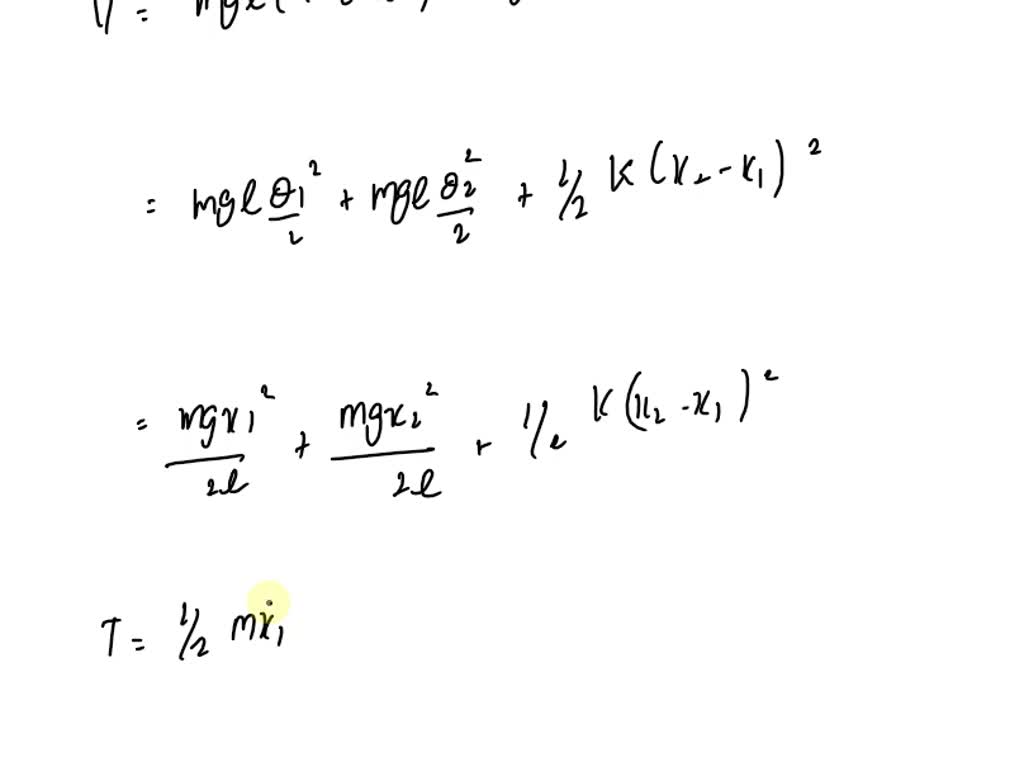 V = mgl(
= mgl θ₁²/2 + mgl θ₂²/2 + 1/2 K(x₂ - x₁)²
= mgx₁²/2l + mgx₂²/2l + 1/2 K(x₂ - x₁)²
T = 1/2 mẋ₁